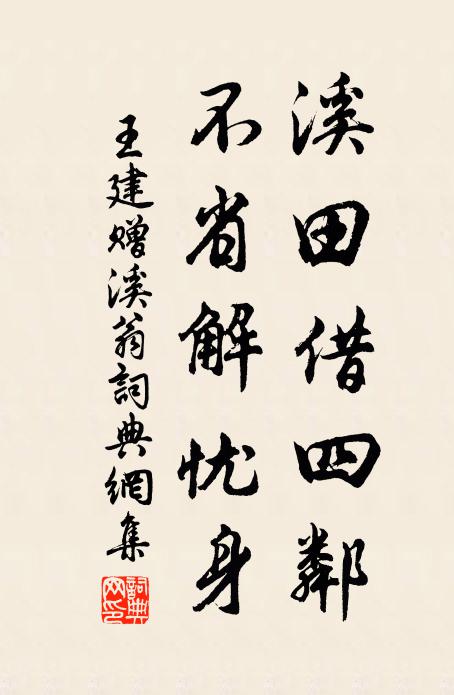 溪田借四鄰
不省解忧身
王建赠溪翁詞典網集
詞典網印